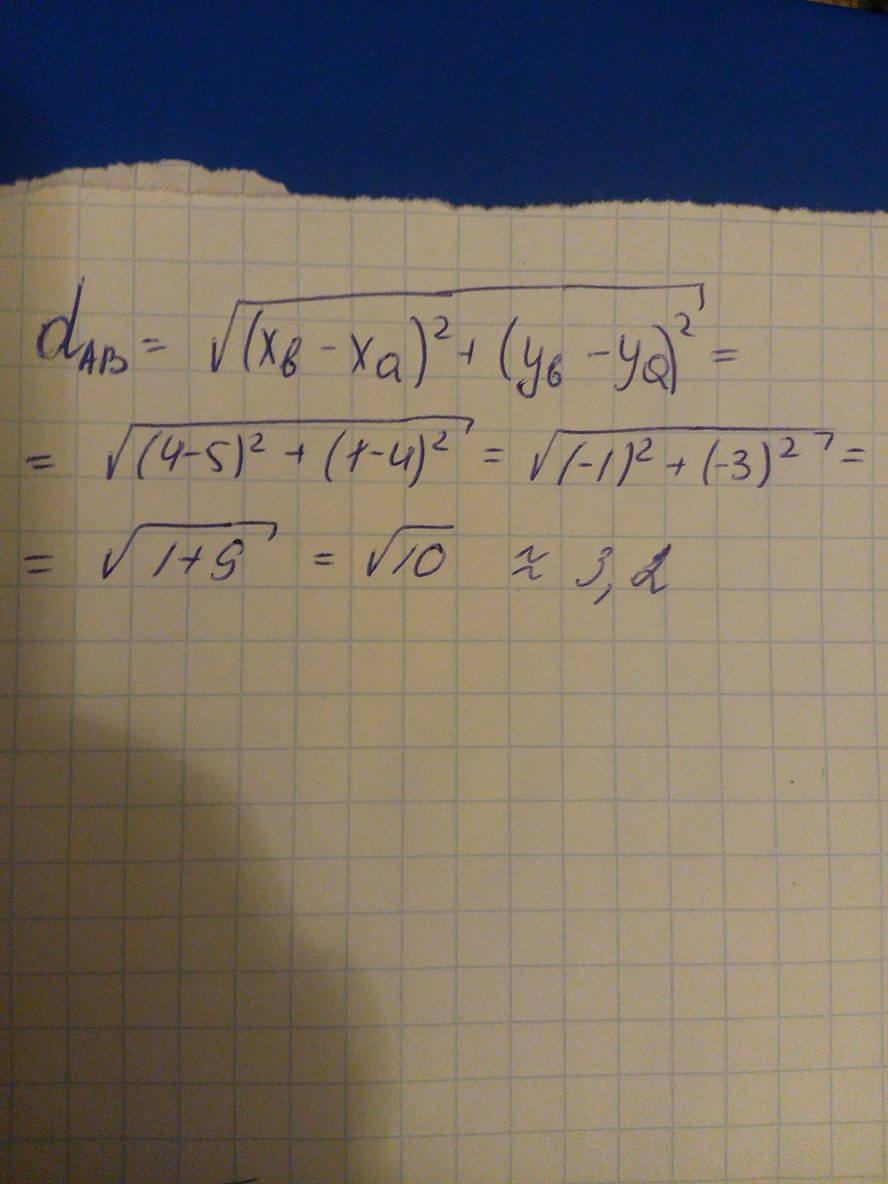 d_AB = √((x_B - x_A)² + (y_B - y_A)²) =
= √((4-5)² + (1-4)²) = √((-1)² + (-3)²) =
= √(1+9) = √10 ≈ 3,2